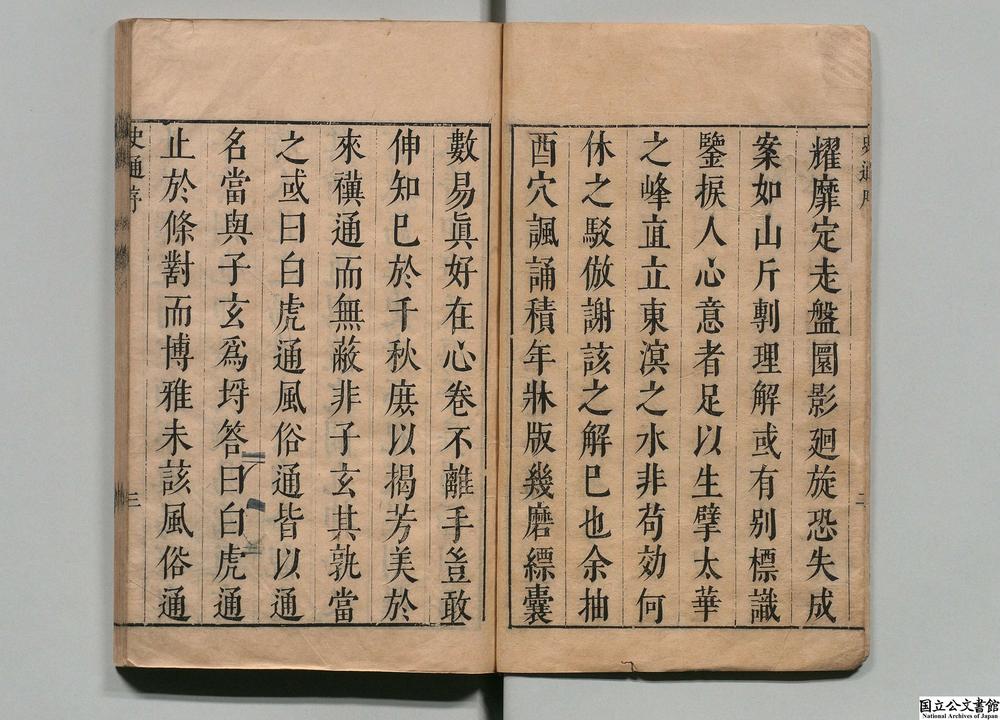 耀靡定走盤圜影廻旋恐失成
案如山斤剸理解或有别標識
鑒捩人心意者足以生擘太華
之峰直立東溟之水非苟効何
休之駁倣謝該之解巳也余抽
酉穴諷誦積年牀版幾磨縹囊
數易眞好在心卷不離手豈敢
伸知巳於千秋庻以揭芳美於
來禩通而無蔽非子玄其孰當
之或曰白虎通風俗通皆以通
名當與子玄爲埒答曰白虎通
止於條對而博雅未該風俗通
史通序
三
国立公文書館
National Archives of Japan